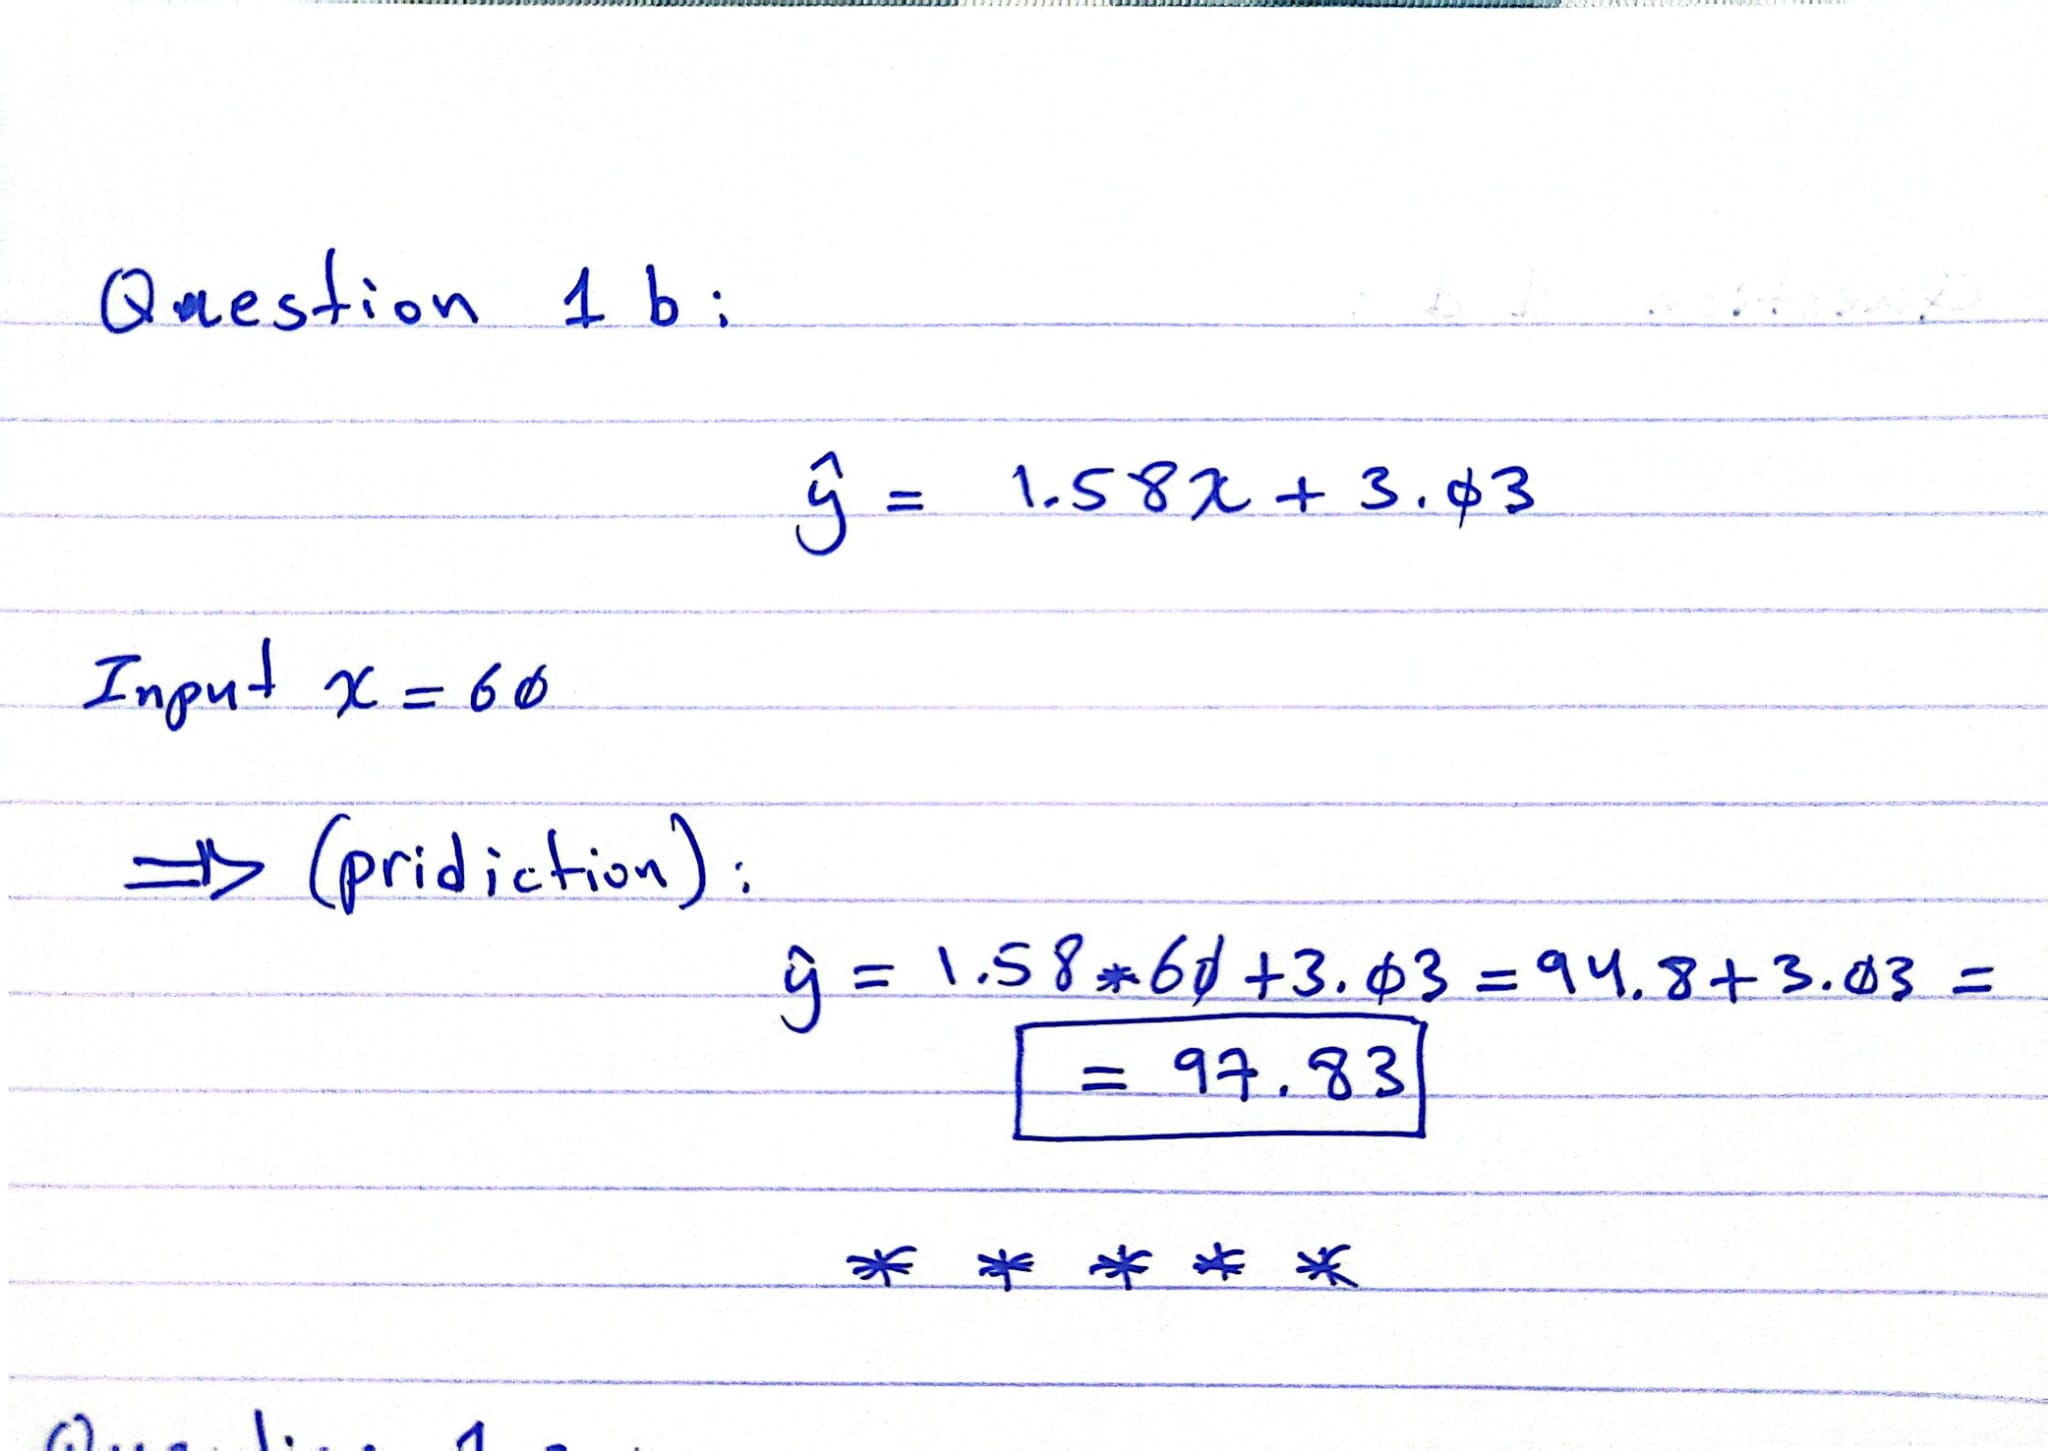 Question 1 b:
ŷ = 1.58x + 3.03
Input x = 60
⇒ (pridiction):
ŷ = 1.58*60+3.03 = 94.8+3.03 =
= 97.83
* * * * *
Question 1